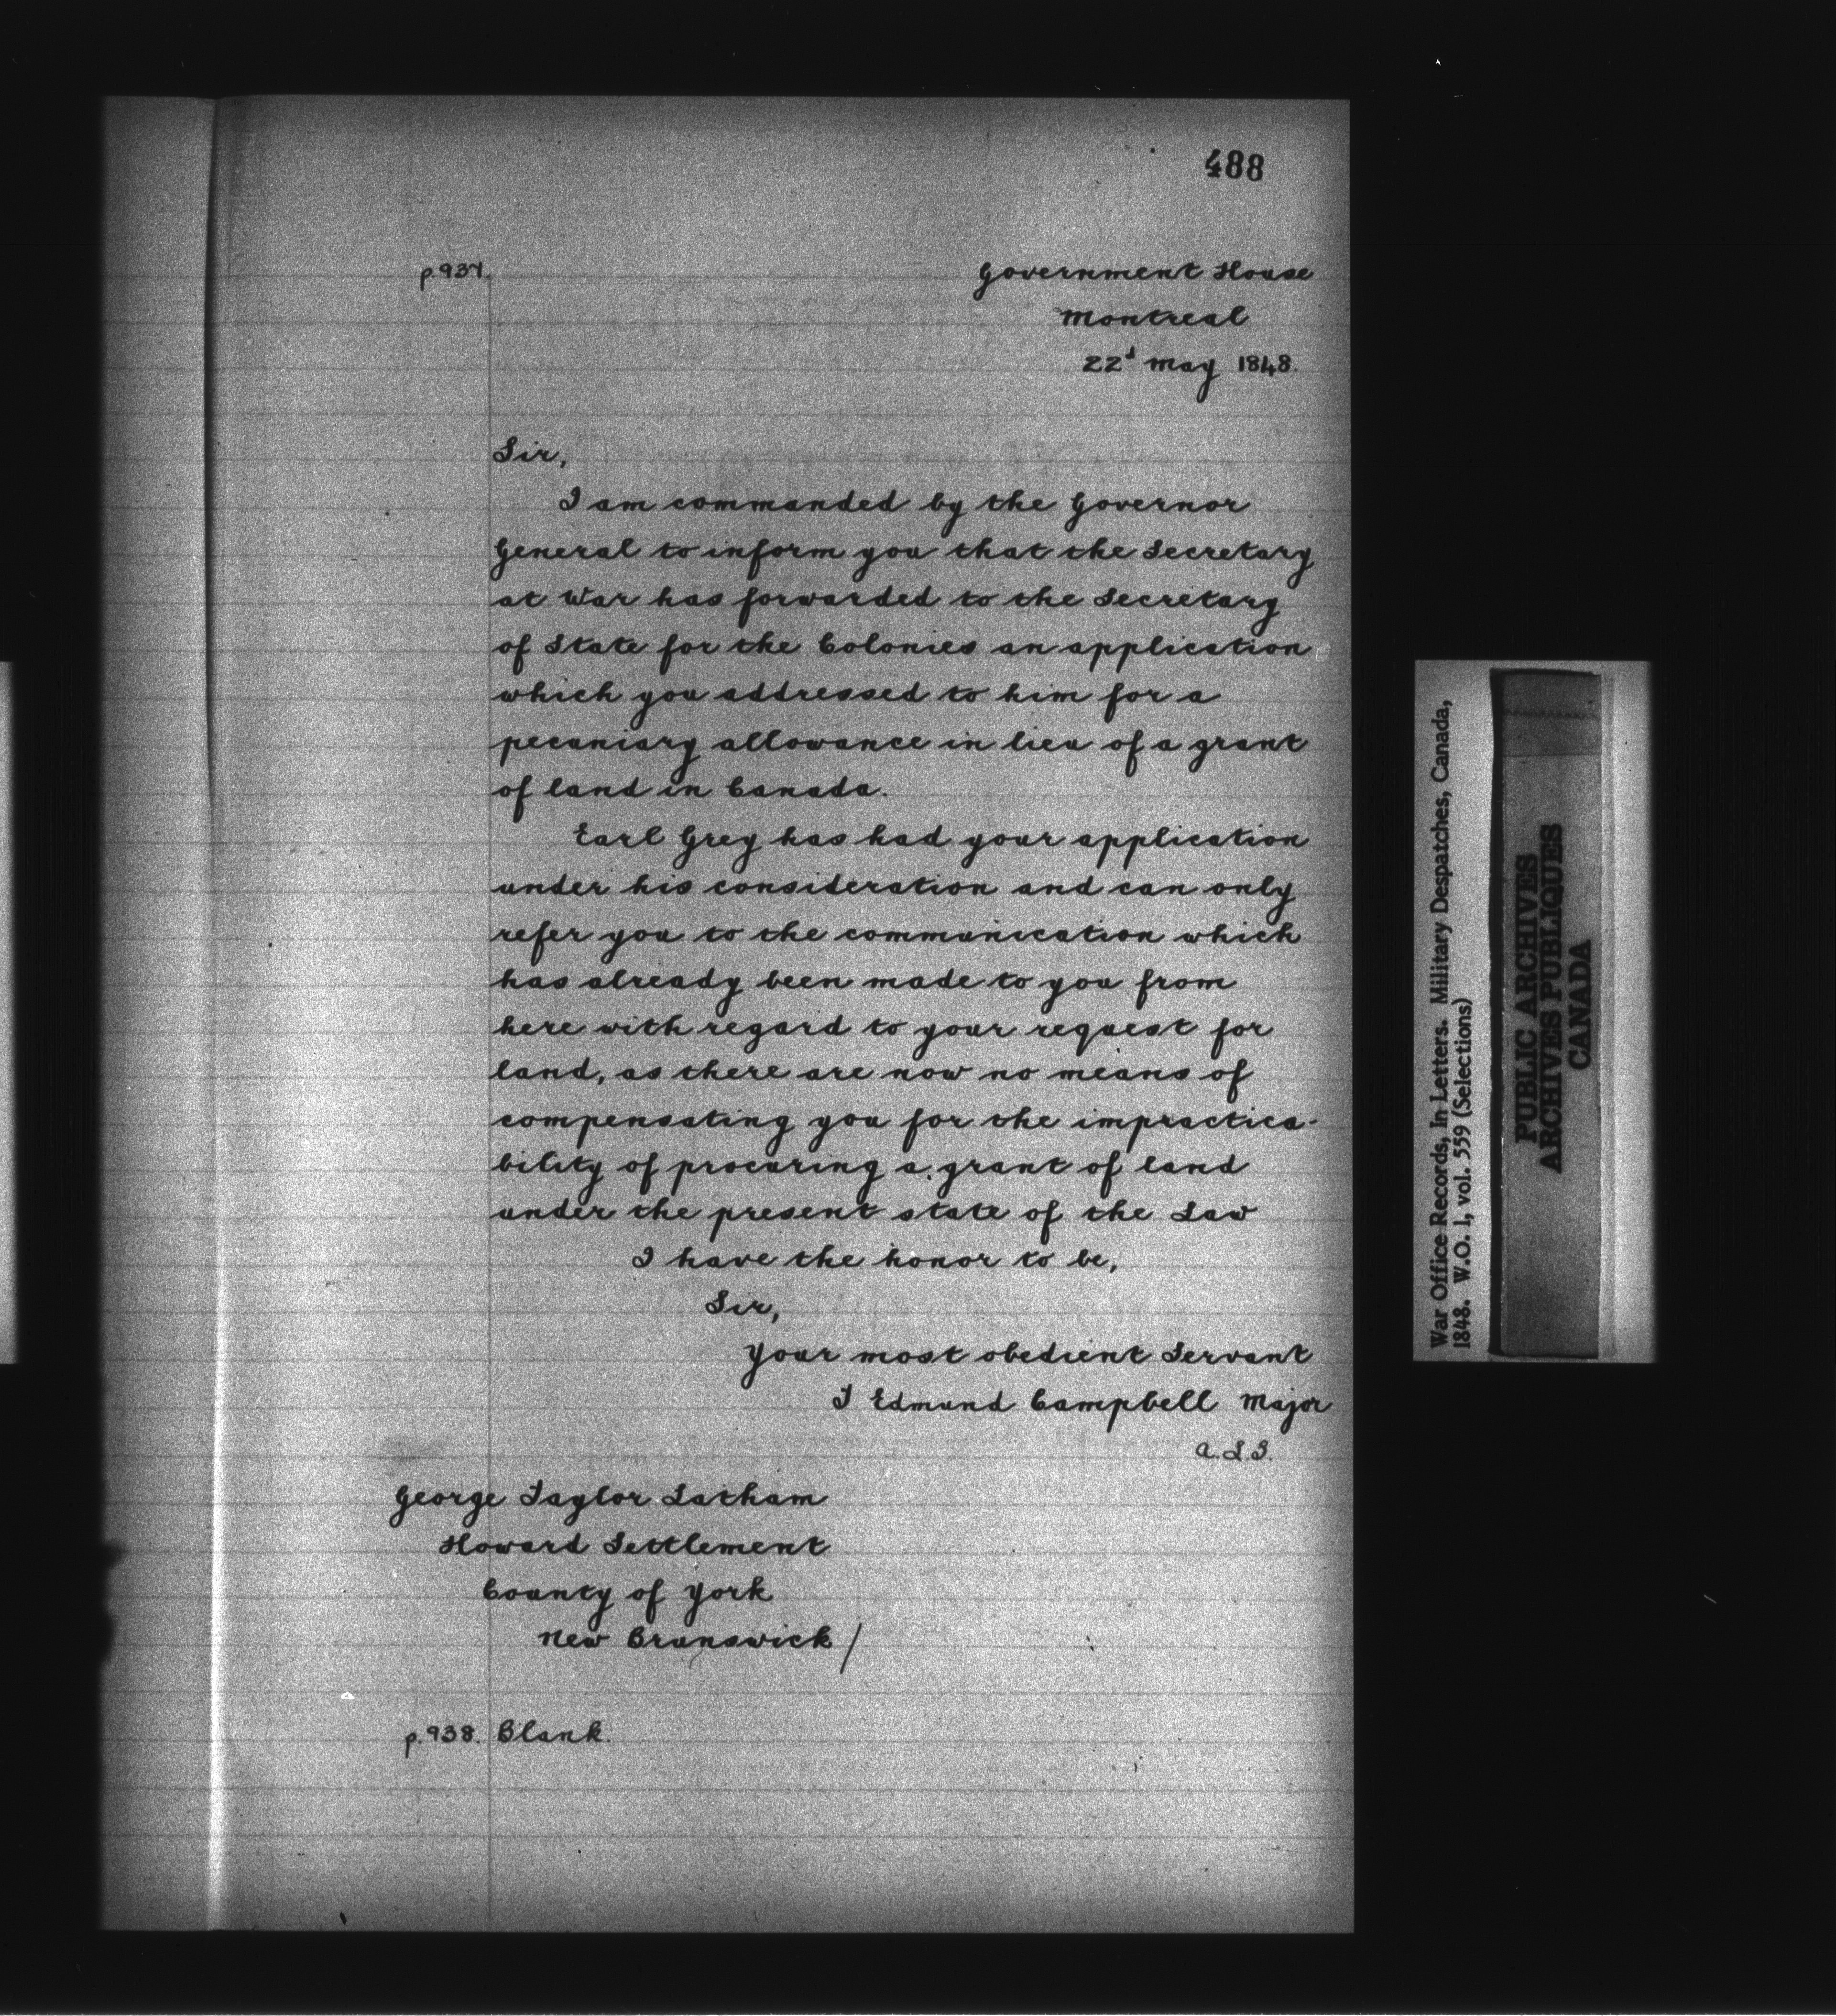 488
p.937.
Government House
Montreal
22d May 1848.
Sir,
I am commanded by the Governor
General to inform you that the Secretary
at War has forwarded to the Secretary
of State for the Colonies an application
which you addressed to him for a
pecuniary allowance in lieu of a grant
of land in Canada.
Earl Grey has had your application
under his consideration and can only
refer you to the communication which
has already been made to you from
here with regard to your request for
land, as there are now no means of
compensating you for the impractica-
bility of procuring a grant of land
under the present state of the Law
I have the honor to be,
Sir,
Your most obedient Servant
T Edmund Campbell Major
George Taylor Latham
Howard Settlement
County of York
New Brunswick /
p.938. Blank.
War Office Records, In-Letters. Military Despatches, Canada,
1848. W.O. 1, vol. 559 (Selections)
PUBLIC ARCHIVES
ARCHIVES PUBLIQUES
CANADA